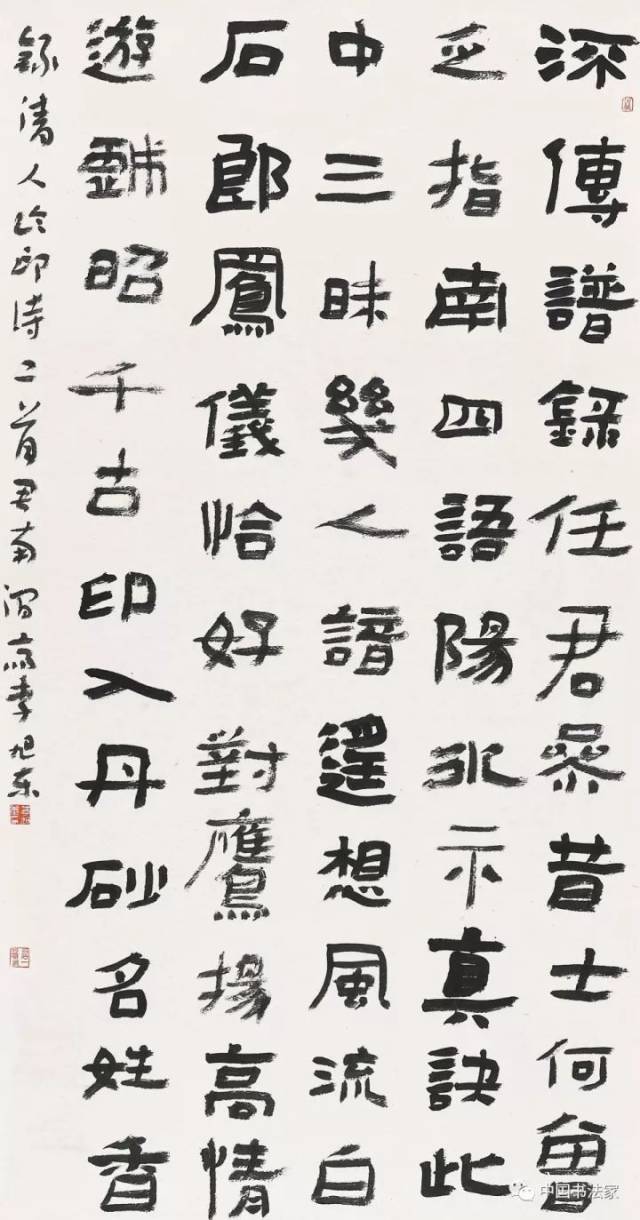 深傳譜錄任君參昔士何曾
乏指南四語陽冰示真訣此
中三昧幾人諳想風流白
石郎鳳儀恰好對鷹揚高情
遊戲昭千古印入丹砂名姓香
錄清人論印詩二首李旭东
中国书法家